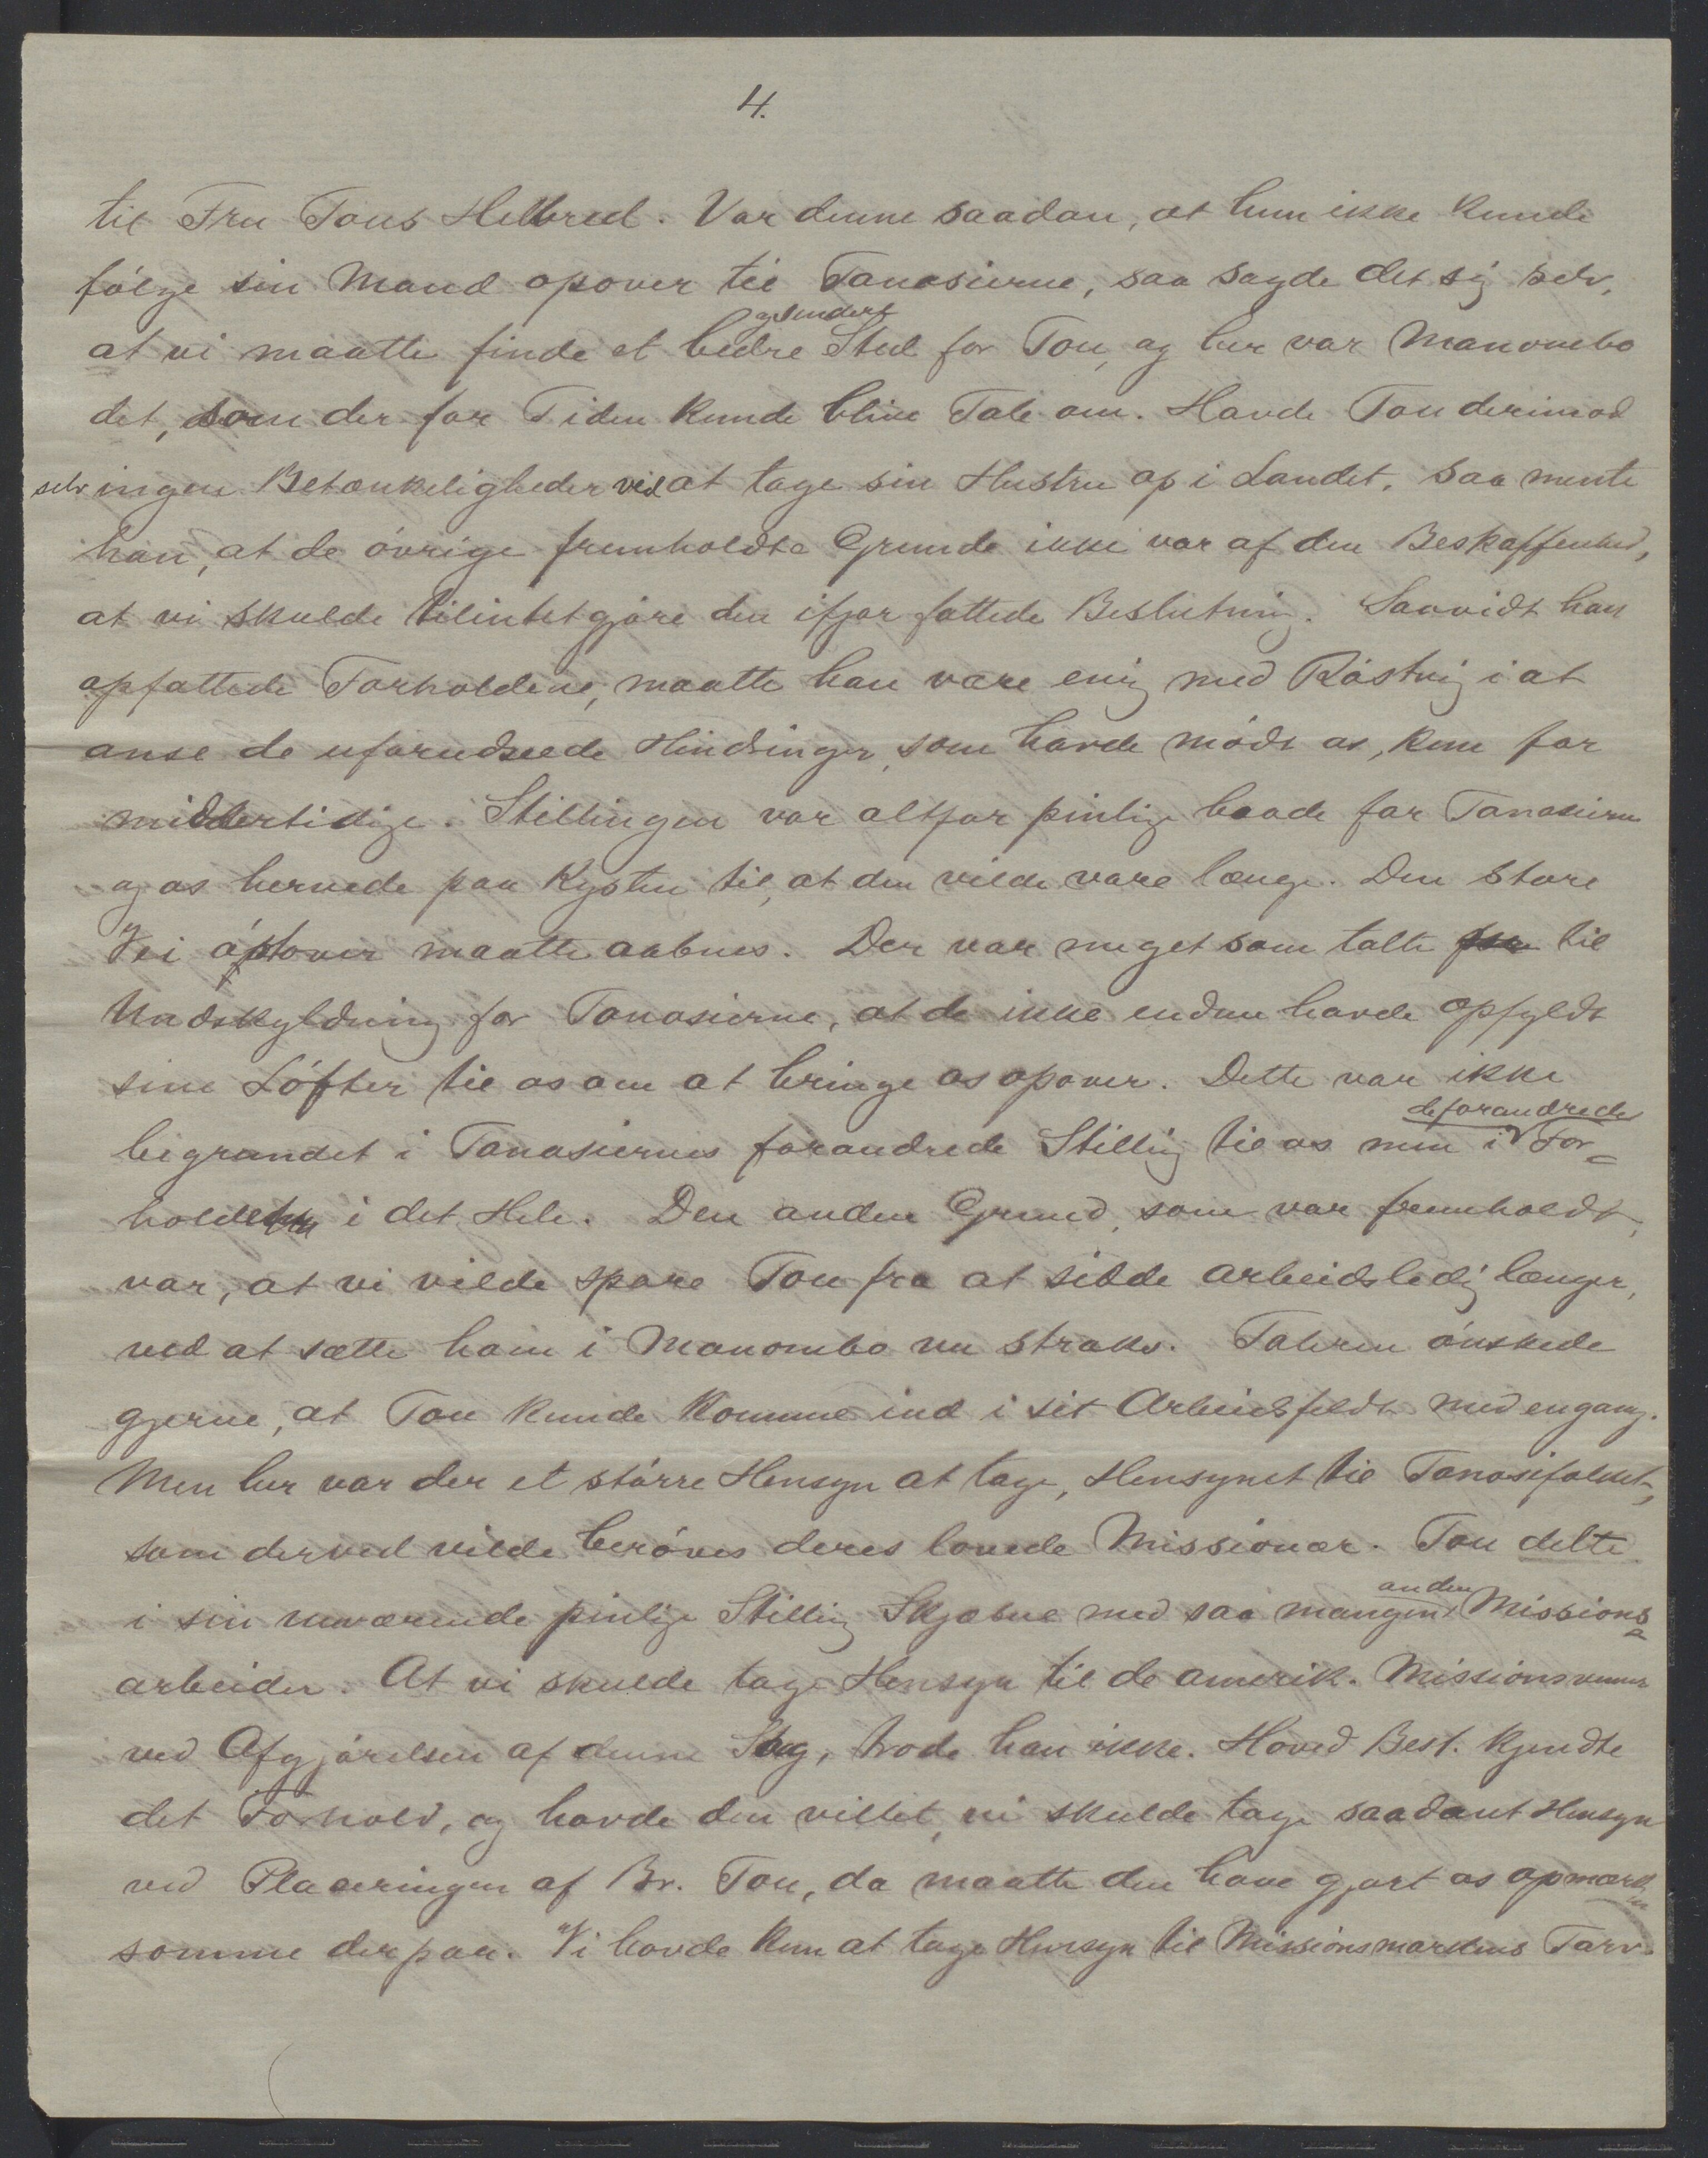 4.
til Fru Tous Helbred. Var denne saadan, at hun ikke kunde
følge sin Mand opover til Tanosierne, saa sagde det sig selv,
at vi maatte finde et bedre gesundert Sted for Tou, og her var Manombo
det, som der for Tiden kunde blive Tale om. Havde Tou derimod
selv ingen Betænkeligheder ved at tage sin Hustru op i Landet, saa mente
han, at de øvrige fremholdte Grunde ikke var af den Beskaffenhed,
at vi skulde tilintetgjøre den ifjor fattede Beslutning. Saavidt han
opfattede Forholdene, maatte han være enig med Røstvig i at
anse de uforudseede Hindringer, som havde mødt os, kun for
midlertidige. Stillingen var altfor pinlig baade for Tanosierne
og os hernede paa Kysten til, at den vilde vare længe. Den store
Vei opover maatte aabnes. Der var meget som talte for til
Undskyldning for Tanosierne, at de ikke endnu havde opfyldt
sine Løfter til os om at bringe os opover. Dette var ikke
begrundet i Tanosiernes forandrede Stilling til os men i de forandrede For-
holde i det Hele. Den anden Grund, som var fremholdt,
var, at vi vilde spare Tou fra at sidde arbeidsledig længer,
ved at sætte ham i Manombo nu straks. Taleren ønskede
gjerne, at Tou kunde komme ind i sit Arbeidsfeldt med engang.
Men her var der et større Hensyn at tage, Hensynet til Tanosifolket,
som derved vilde berøves deres lovede Missionær. Tou delte
i sin nuværende pinlige Stilling Skjæbne med saa mangen anden Missions-
arbeider. At vi skulde tage Hensyn til de amerik. Missionsvenner
ved Afgjørelsen af denne Sag, trode han ikke. Hoved Best. kjendte
det Forhold, og havde den villet, vi skulde tage saadant Hensyn
ved Placeringen af Br. Tou, da maatte den have gjort os opmærk-
somme derpaa. Vi havde kun at tage Hensyn til Missionsmarkens Tarv.